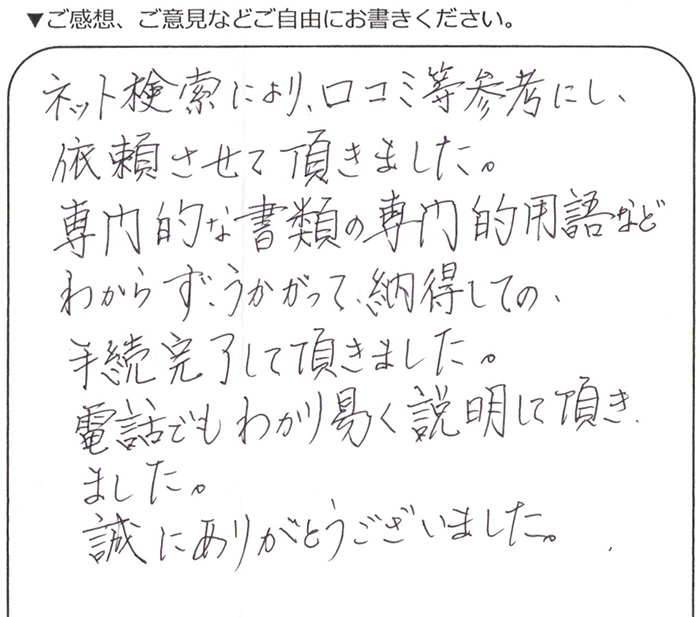 ▼ご感想、ご意見などご自由にお書きください。
ネット検索により、口コミ等参考にし、
依頼させて頂きました。
専門的な書類の専門的用語など
わからず、うかがって、納得しての、
手続完了して頂きました。
電話でもわかり易く説明して頂き
ました。
誠にありがとうございました。